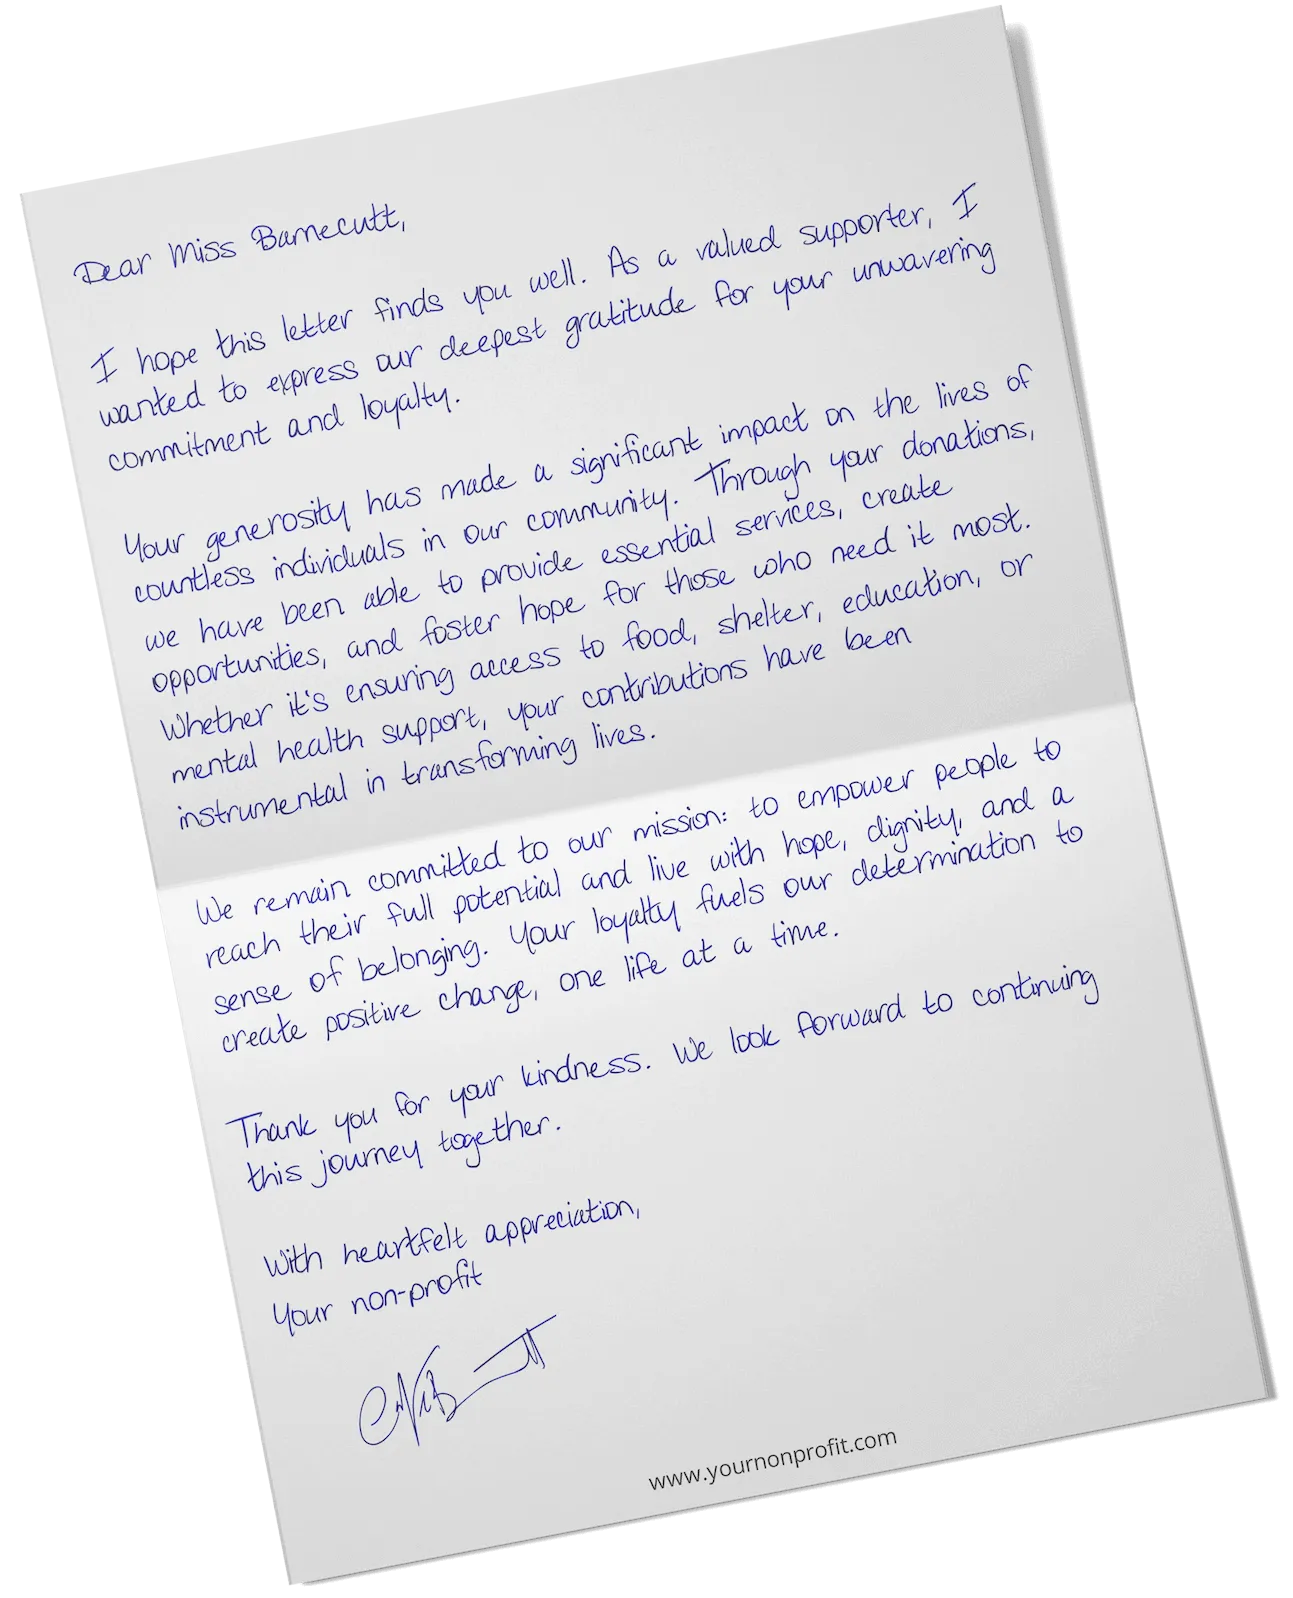 Dear Miss Barnecutt,
I hope this letter finds you well. As a valued supporter, I
wanted to express our deepest gratitude for your unwavering
commitment and loyalty.
Your generosity has made a significant impact on the lives of
countless individuals in our community. Through your donations,
we have been able to provide essential services, create
opportunities, and foster hope for those who need it most.
Whether it's ensuring access to food, shelter, education, or
mental health support, your contributions have been
instrumental in transforming lives.
We remain committed to our mission: to empower people to
reach their full potential and live with hope, dignity, and a
sense of belonging. Your loyalty fuels our determination to
create positive change, one life at a time.
Thank you for your kindness. We look forward to continuing
this journey together.
With heartfelt appreciation,
Your non-profit
www.yournonprofit.com